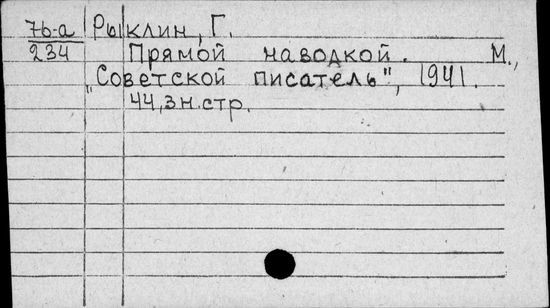 76-а Рыклин, Г.
234 Прямой наводкой. М.,
„Советской писатель", 1941.
44,3н.стр.